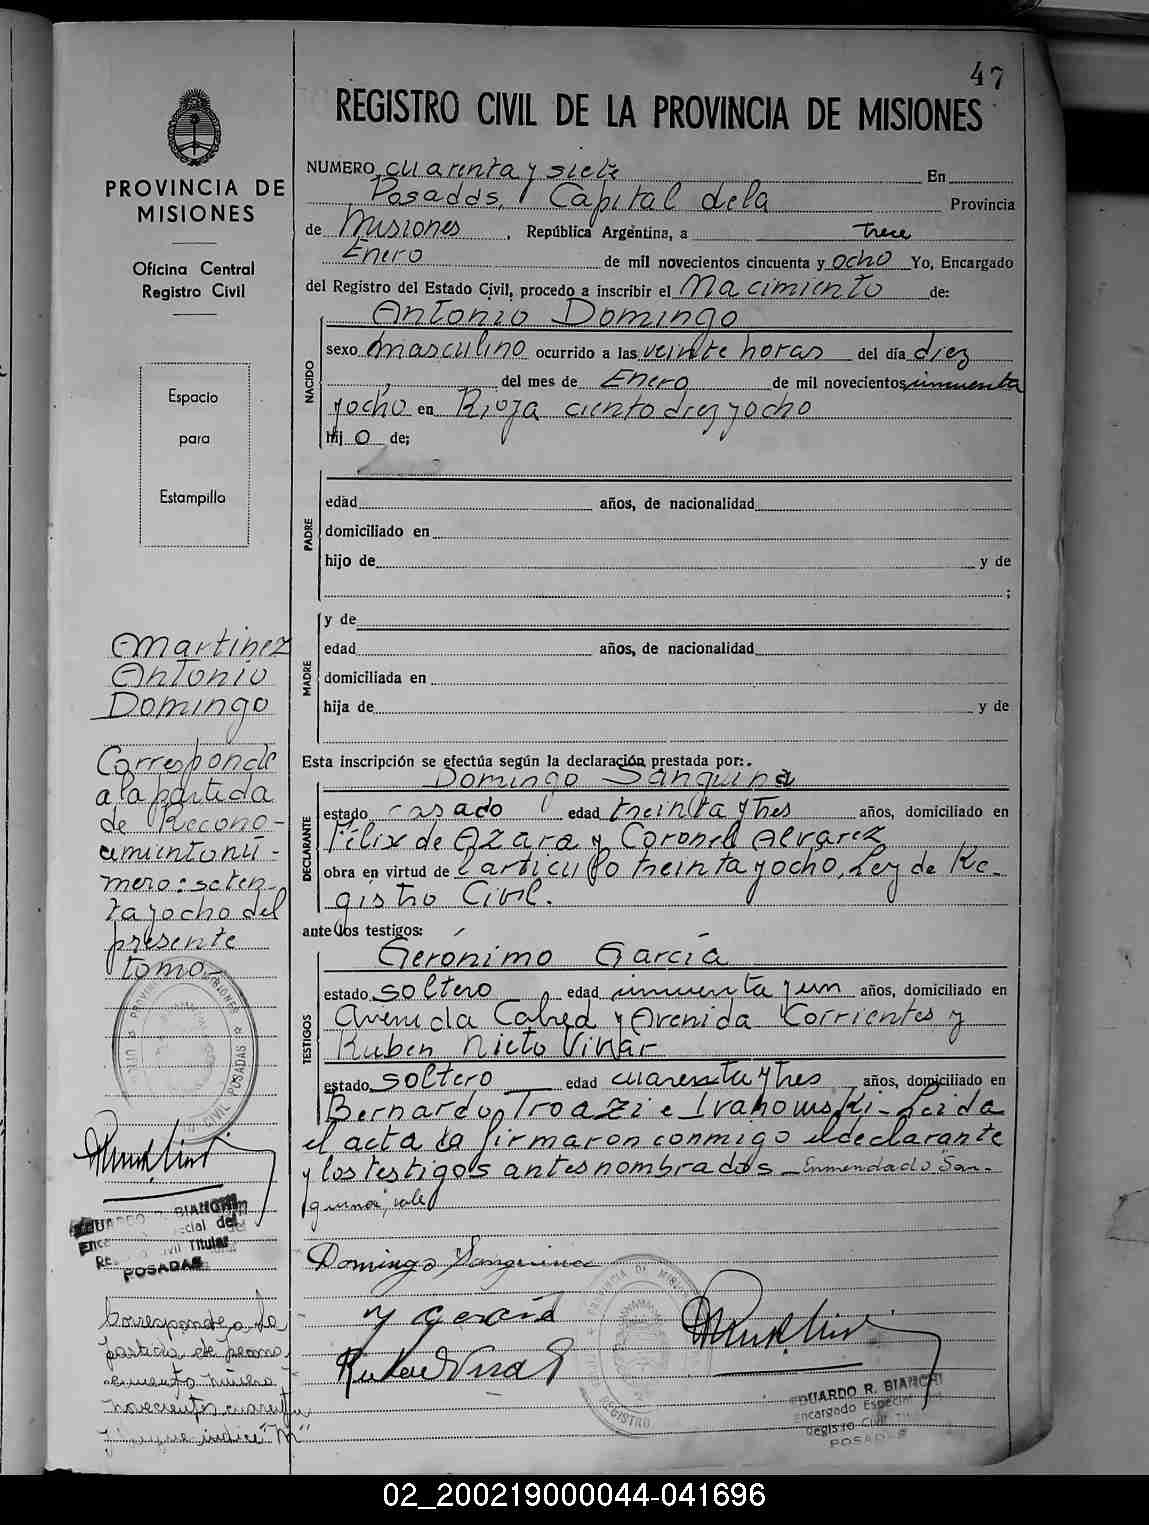 47
REGISTRO CIVIL DE LA PROVINCIA DE MISIONES
PROVINCIA DE
MISIONES
Oficina Central
Registro Civil
Espacio
para
Estampilla
Martinez
Antonio
Domingo
Corresponde
a la partida
de Recono-
cimiento nú-
mero: seten-
ta y ocho del
presente
tomo-
POSADAS
Corresponde a la
partida de recono-
cimiento número
novecientos cuarenta
indice "M"
NUMERO cuarenta y siete En
Posadas, Capital de la Provincia
de Misiones, República Argentina, a trece
Enero de mil novecientos cincuenta y ocho Yo, Encargado
del Registro del Estado Civil, procedo a inscribir el Nacimiento de:
Antonio Domingo
NACIDO
sexo masculino ocurrido a las veinte horas del día diez
del mes de Enero de mil novecientos cincuenta
y ocho en Rioja ciento diez y ocho
hij o de;
PADRE
edad años, de nacionalidad
domiciliado en
hijo de y de
;
MADRE
y de
edad años, de nacionalidad
domiciliada en
hija de y de
Esta inscripción se efectúa según la declaración prestada por:
Domingo Sanguina
DECLARANTE
estado casado edad treinta y tres años, domiciliado en
Félix de Azara y Coronel Alvarez
obra en virtud de l articulo treinta y ocho, Ley de Re-
gistro Civil.
ante los testigos:
TESTIGOS
Gerónimo García
estado soltero edad cincuenta y un años, domiciliado en
Avenida Cabred y Avenida Corrientes y
Ruben Nieto Vinar
estado soltero edad cuarenta y tres años, domiciliado en
Bernardo Troazi e Ivanowski- Leida
el acta la firmaron conmigo el declarante
y los testigos antes nombrados - Enmendado "San-
guina", vale
Domingo Sanguina
EDUARDO R. BIANCHI
Encargado Especial
Registro Civil
POSADAS
02_200219000044-041696